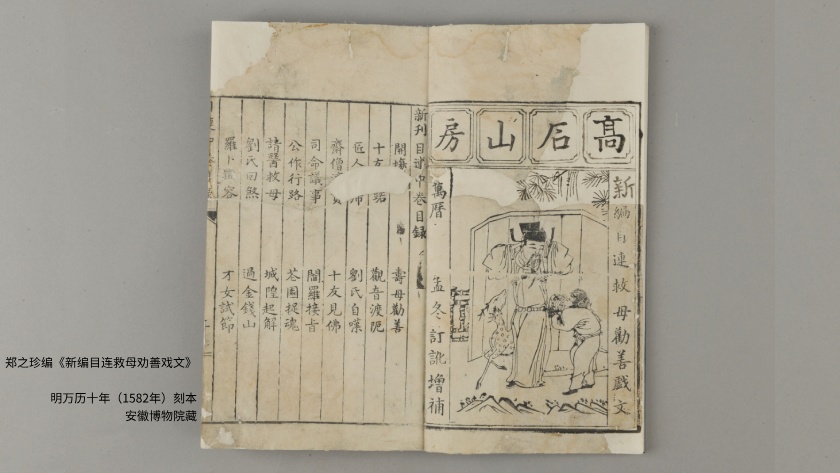 髙石山房
新編目連救母勸善戲文
萬曆
孟冬訂訛增補
新刊目連中卷目録
開場 壽母勸善
十友 路 觀音渡厄
匠人 席 劉氏自嘆
齋僧 十友見佛
司命議事 閻羅接旨
公作行路 花園捉魂
請醫救母 城隍起解
劉氏回煞 過金錢山
羅卜描容 才女試節
郑之珍编《新编目连救母劝善戏文》
明万历十年（1582年）刻本
安徽博物院藏